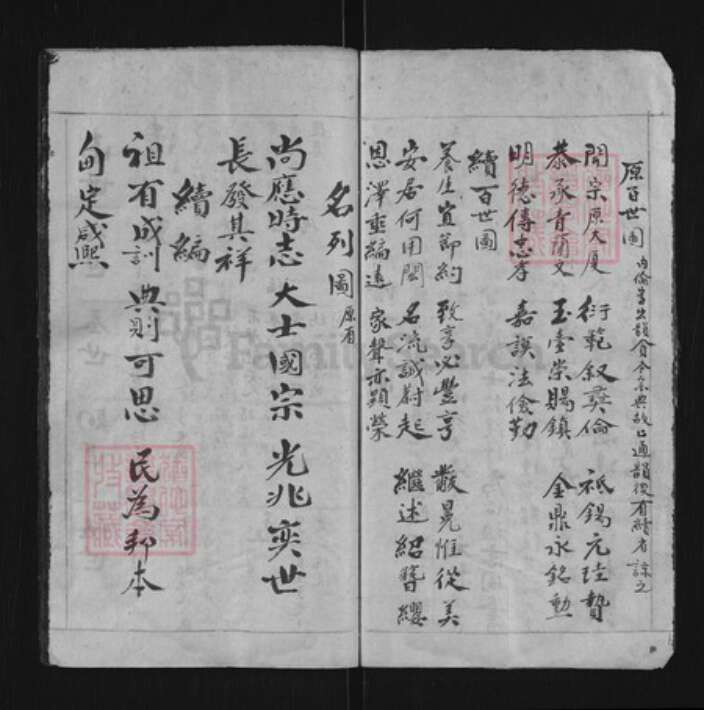 原百世圖 內倫字出韻會今亦典故口通韻後有續者諒之
開宗原大厦 衍範叙彝倫 祗錫元珪贄
恭承青蘭文 玉臺崇賜鎮 金鼎永銘勲
明德傳忠孝 嘉謨法儉勤
續百世圖
養生宜節約 致享必豐亨 黻冕惟從美
安居何用閎 名流誠蔚起 繼述紹簪纓
恩澤重綸遠 家聲亦顯榮
名列圖 原有
尚應時志 大士國宗 光兆奕世
長發其祥
續編
祖有成訓 典則可思 民為邦本
訇定咸熙
FamilySearch